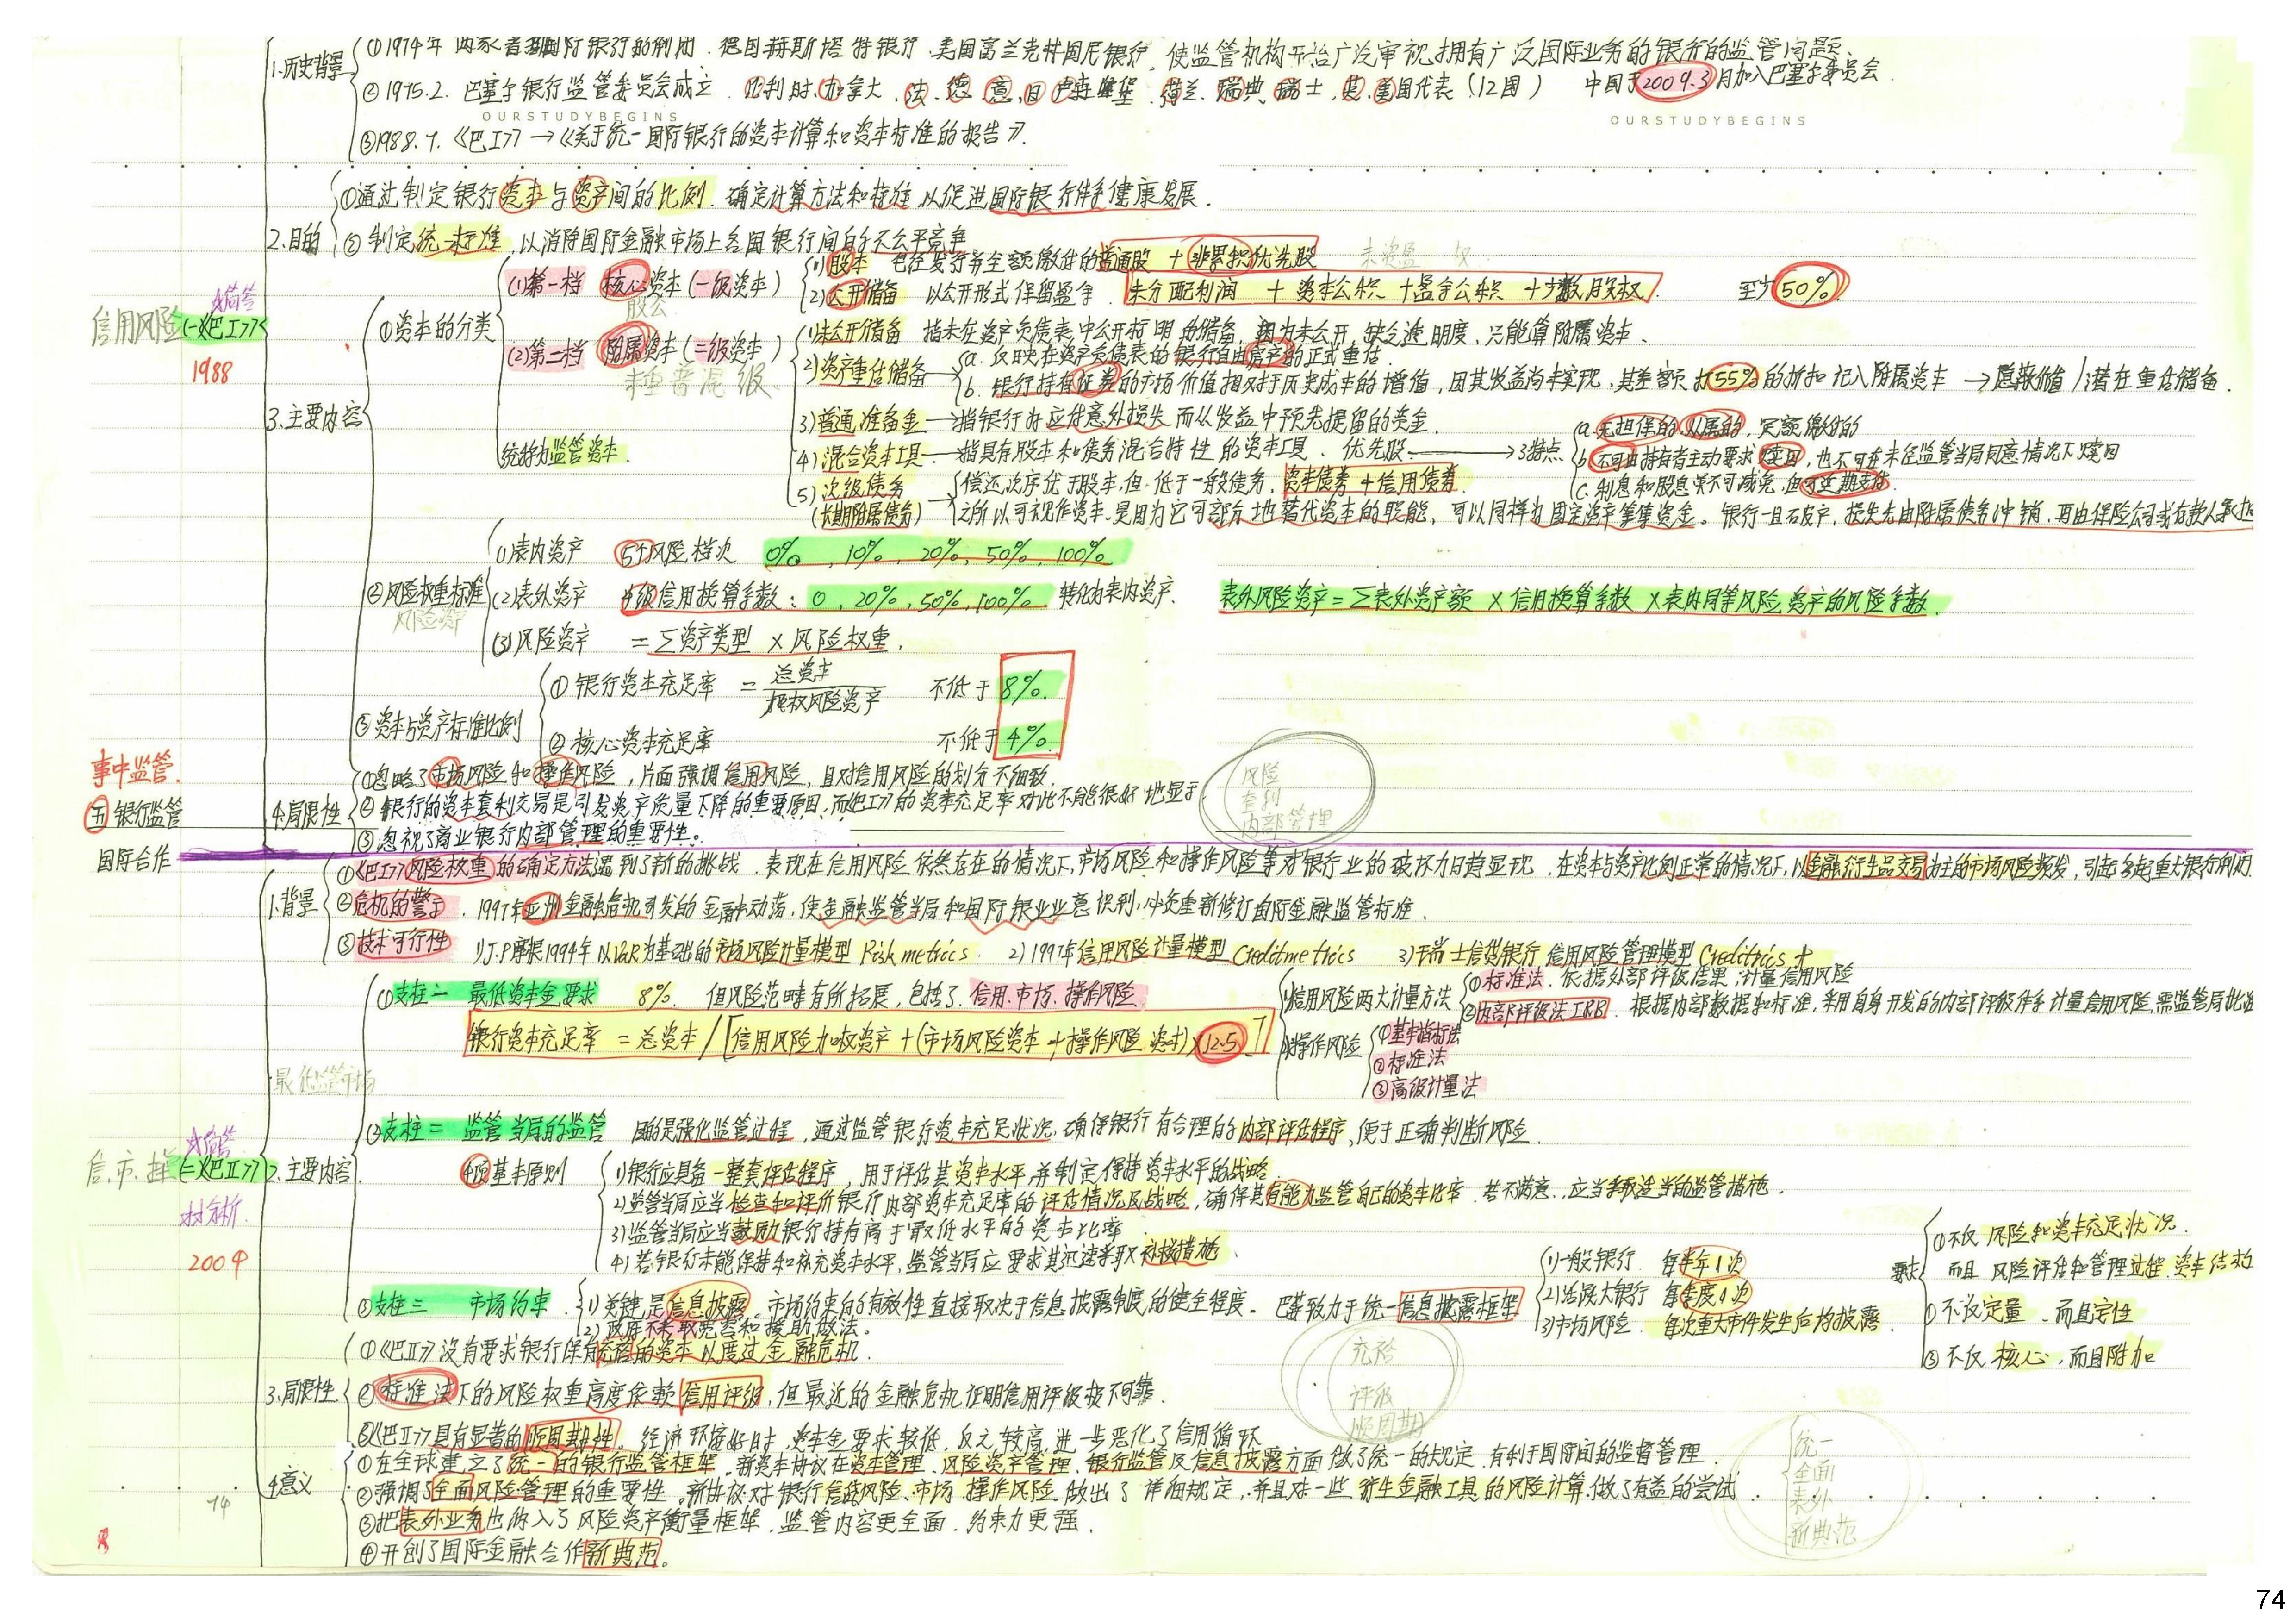 1.历史背景
①1974年 两家著名国际银行的倒闭、德国赫斯塔特银行、美国富兰克林国民银行，使监管机构开始广泛审视拥有广泛国际业务的银行的监管问题、
②1975.2. 巴塞尔银行监管委员会成立 比利时、加拿大、法、德、意、日、卢森堡、荷兰、瑞典、瑞士，英、美国代表（12国） 中国于2009.3月加入巴塞尔委员会
OURSTUDYBEGINS
OURSTUDYBEGINS
③1988.7.《巴I》→《关于统一国际银行的资本计算和资本标准的报告》.
①通过制定银行资本与资产间的比例．确定计算方法和标准，以促进国际银行体系健康发展．
2.目的
②制定统一标准，以消除国际金融市场上各国银行间的不公平竞争
(1)第一档 核心资本（一级资本）
股公
1)股本 已经发行并全额缴付的普通股 + 非累积优先股
2)公开储备 以公开形式保留盈余．未分配利润 + 资本公积 + 盈余公积 + 少数股权． 至少50%
☆简答
信用风险 (一)《巴I》
1988
3.主要内容
①资本的分类
(2)第二档 附属资本（二级资本）
未重普混级
1)未公开储备 指未在资产负债表中公开标明的储备，因为未公开，缺乏透明度，只能算附属资本．
2)资产重估储备→
a. 反映在资产负债表的银行自由房产的正式重估
b. 银行持有证券的市场价值相对于历史成本的增值，因其收益尚未实现，其差额打55%的折扣记入附属资本 → 隐蔽价值/潜在重估储备．
3)普通准备金→指银行为应付意外损失而从收益中预先提留的资金．
统称为监管资本．
4)混合资本工具→指具有股本和债务混合特性的资本工具．优先股→3特点
a.无担保的、从属的，足额缴付的
b.不可由持有者主动要求赎回，也不可在未经监管当局同意情况下赎回
c.利息和股息不可减免，但可延期支付
5)次级债务（长期附属债务）→
偿还次序优于股本，但低于一般债务，资本债券+信用债券
之所以可视作资本，是因为它可部分地替代资本的职能，可以同样为固定资产筹集资金。银行一旦破产，损失先由附属债务冲销，再由保险公司或存款人承担
②风险权重标准
风险资产
(1)表内资产 5个风险档次 0%，10%，20%，50%，100%
(2)表外资产 4级信用换算系数：0，20%，50%，100% 转化为表内资产． 表外风险资产=∑表外资产额×信用换算系数×表内同等风险资产的风险系数
(3)风险资产 =∑资产类型×风险权重．
③资本与资产标准比例
①银行资本充足率 = 总资本/加权风险资产 不低于8%．
②核心资本充足率 不低于4%．
事中监管．
五 银行监管
国际合作
4.局限性
①忽略了市场风险和操作风险，片面强调信用风险，且对信用风险的划分不细致．
②银行的资本套利交易是引发资产质量下降的重要原因，而《巴I》的资本充足率对此不能很好地显示
③忽视了商业银行内部管理的重要性。
风险
套利
内部管理
1.背景
①《巴I》风险权重的确定方法遇到了新的挑战．表现在信用风险依然存在的情况下，市场风险和操作风险等对银行业的破坏力日趋显现．在资本与资产比例正常的情况下，以金融衍生品交易为主的市场风险频发，引起多起重大银行倒闭
②危机的警示．1997年亚洲金融危机引发的金融动荡，使金融监管当局和国际银行业意识到，必须重新修订国际金融监管标准．
③技术可行性 1)J.P摩根1994年以VaR为基础的市场风险计量模型 Risk metrics． 2)1997年信用风险计量模型 Creditmetrics 3)瑞士信贷银行 信用风险管理模型
①支柱一 最低资本金要求 8%．但风险范畴有所拓展，包括了信用、市场、操作风险
银行资本充足率 = 总资本/[信用风险加权资产+(市场风险资本+操作风险资本)×12.5]
1)信用风险两大计量方法
①标准法．依据外部评级结果，计量信用风险
②内部评级法IRB．根据内部数据和标准，采用自身开发的内部评级体系计量信用风险，需监管局批准
2)操作风险
①基本指标法
②标准法
③高级计量法
最低监管市场
②支柱二 监管当局的监管 目的是强化监管过程，通过监管银行资本充足状况，确保银行有合理的内部评估程序，便于正确判断风险．
☆简答
信.市.操 (二)《巴II》
2004
2.主要内容
4项基本原则
1)银行应具备一整套评估程序，用于评估其资本水平，并制定保持资本水平的战略
2)监管当局应当检查和评价银行内部资本充足率的评估情况及战略，确保其有能力监管自己的资本比率．若不满意，应当采取适当的监管措施．
3)监管当局应当鼓励银行持有高于最低水平的资本比率
4)若银行未能保持和补充资本水平，监管当局应要求其迅速采取补救措施．
③支柱三 市场约束
1)关键是信息披露．市场约束的有效性直接取决于信息披露制度的健全程度．巴塞致力于统一信息披露框架
2)政府不采取宽容和援助做法。
1)一般银行 每半年1次
2)活跃大银行 每季度1次
3)市场风险 每次重大事件发生后均披露．
要求
①不仅 风险和资本充足状况．
而且 风险评估和管理过程、资本结构
②不仅定量、而且定性
③不仅核心，而且附加
3.局限性
①《巴II》没有要求银行保有充裕的资本以度过金融危机．
②标准法下的风险权重高度依赖信用评级，但最近的金融危机证明信用评级极不可靠．
③《巴II》具有显著的顺周期性．经济环境好时，资本金要求较低，反之，较高，进一步恶化了信用循环
充裕
评级
顺周期
4.意义
①在全球建立了统一的银行监管框架．新资本协议在资本管理、风险资产管理、银行监管及信息披露方面做了统一的规定，有利于国际间的监督管理．
②强调了全面风险管理的重要性．新协议对银行信贷风险、市场、操作风险做出了详细规定，并且对一些衍生金融工具的风险计算做了有益的尝试
③把表外业务也纳入了风险资产衡量框架．监管内容更全面．约束力更强．
④开创了国际金融合作新典范。
统一
全面
表外
新典范
74
74